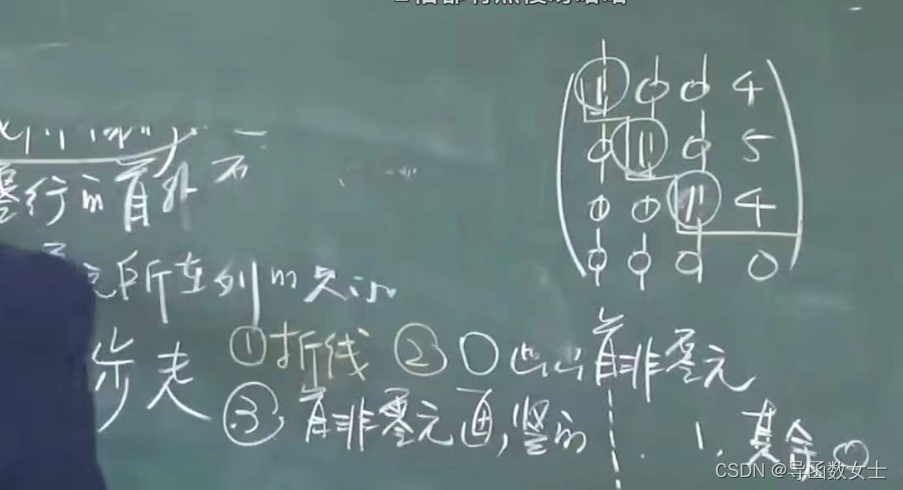 1 0 0 4
0 1 0 5
零行的首非
0 0 1 4
0 0 0 0
元所在列的只
步走 ①折线 ②〇出 首非零元
③首非零元画,竖的 1,其余0
CSDN @导函数女士